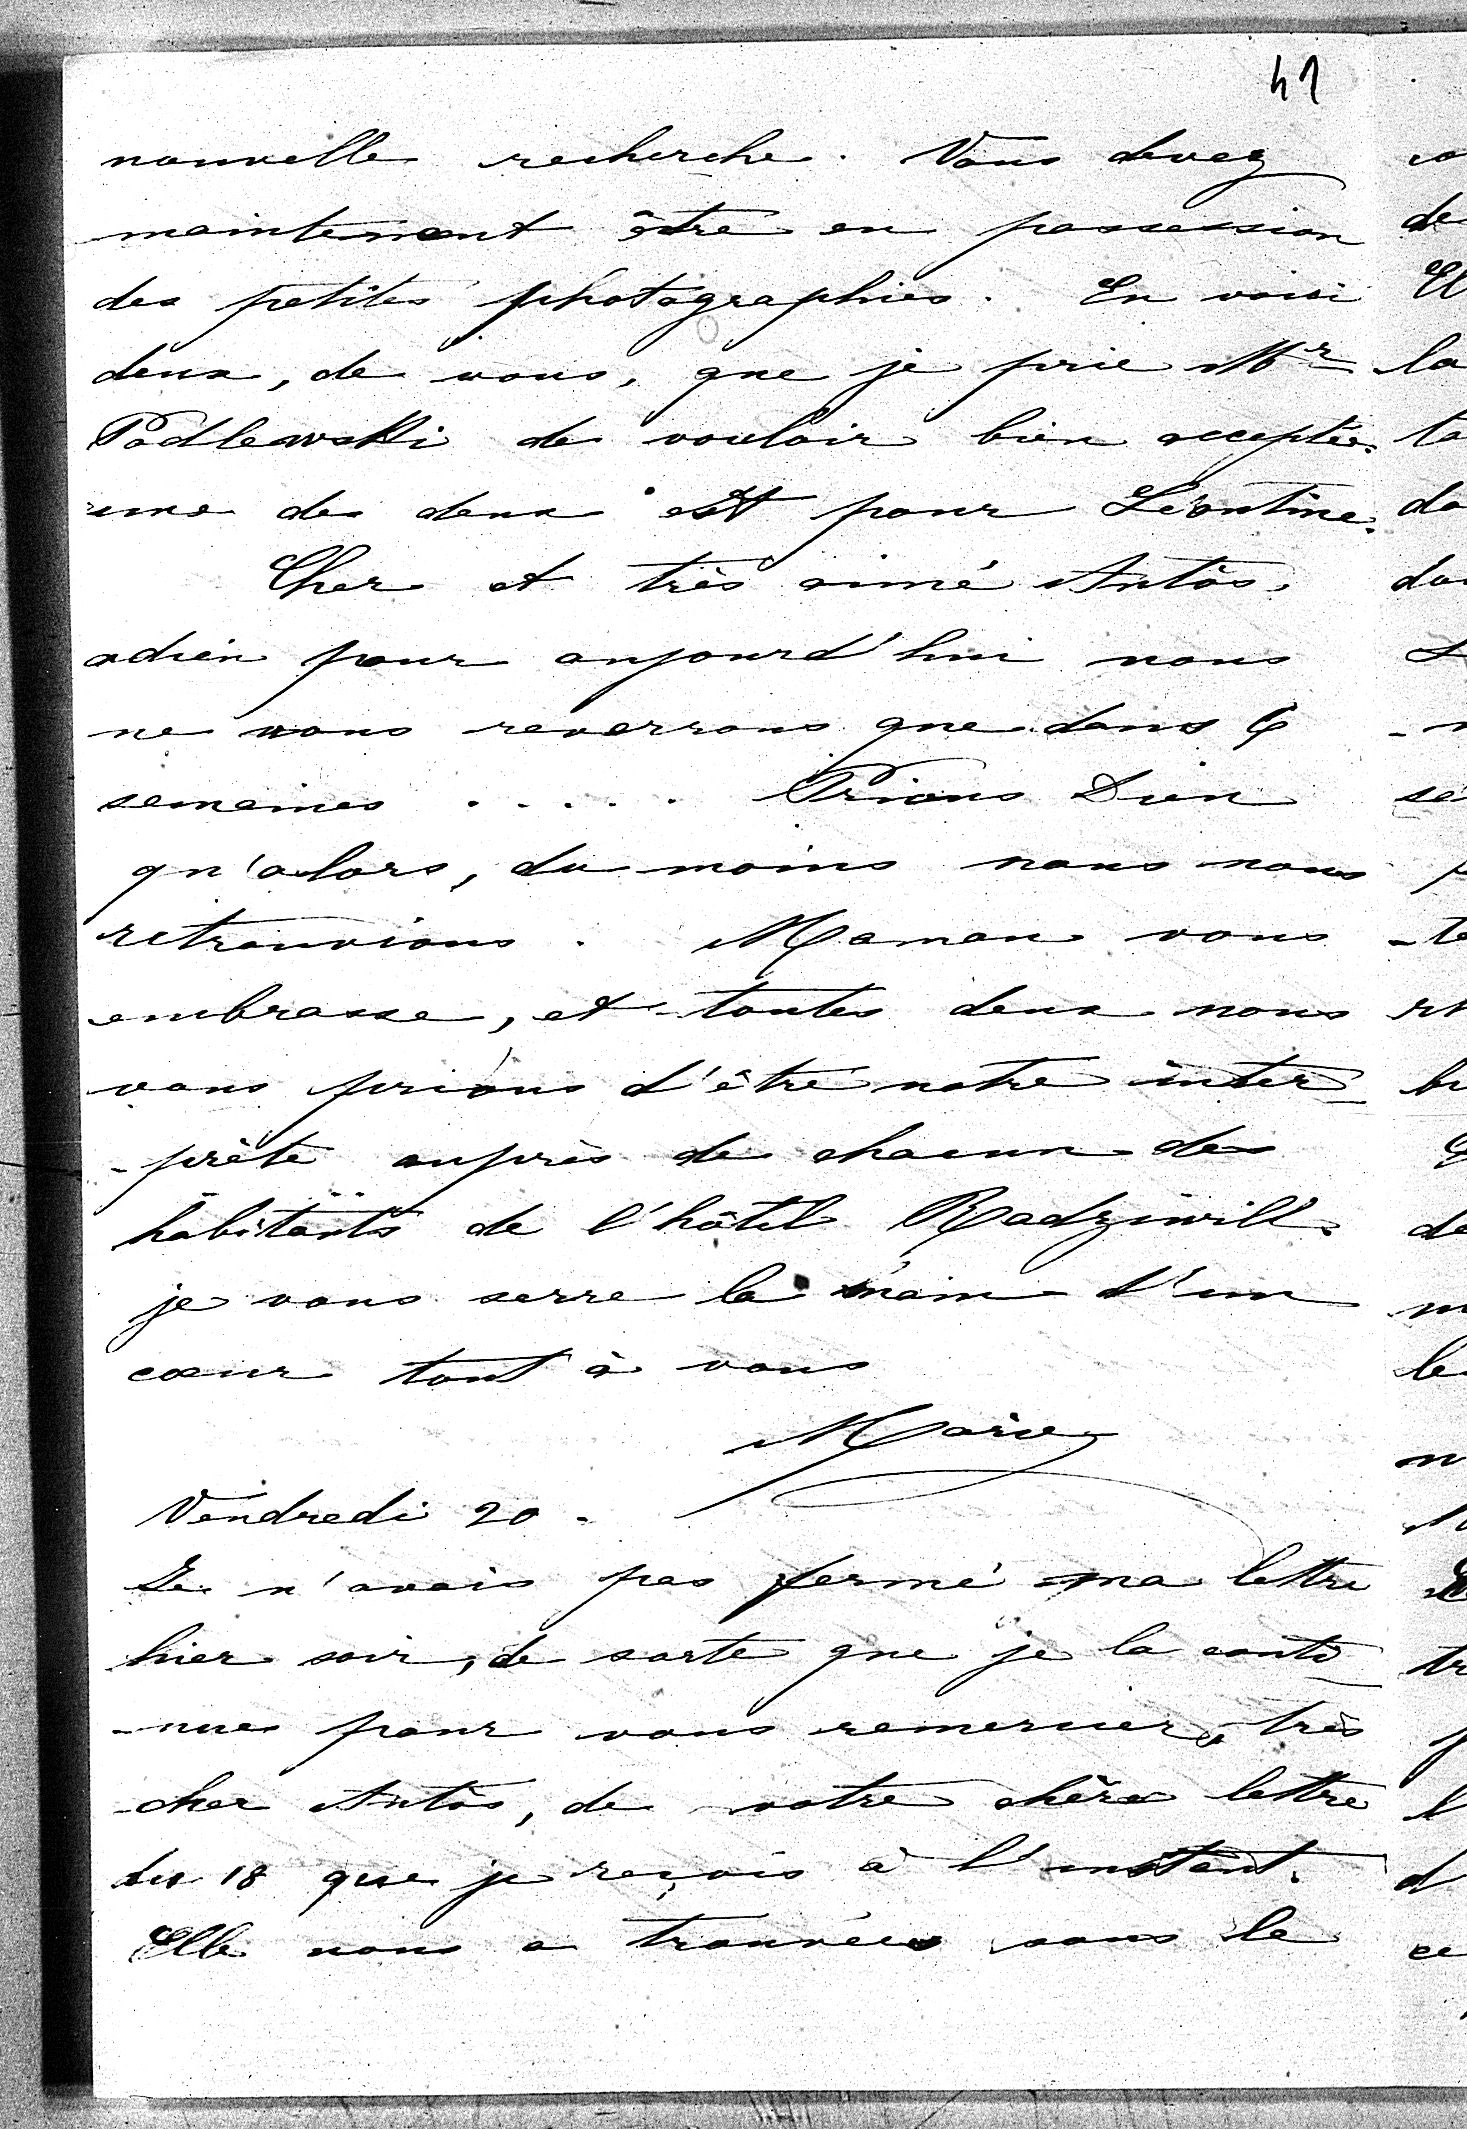 41
nouvelle recherche. Vous devez
maintenant être en possession
des petites photographies. En voici
deux, de vous, que je prie Mr
Podlewski de vouloir bien accepter.
une des deux est pour Léontine.
Cher et très aimé Antôs,
adieu pour aujourd'hui nous
ne vous reverrons que dans 6
semaines . . . . . Prions Dieu
qu'alors, du moins nous nous
retrouvions. Maman vous
embrasse, et toutes deux nous
vous prions d'être notre inter-
-prète auprès de chacun des
habitants de l'hôtel Radziwill.
je vous serre la main d'un
cœur tout à vous
Marie
Vendredi 20.
Je n'avais pas fermé ma lettre
hier soir, de sorte que je la conti-
-nue pour vous remercier, très
cher Antôs, de votre chère lettre
du 18 que je reçois à l'instant.
Elle nous a trouvées sous le